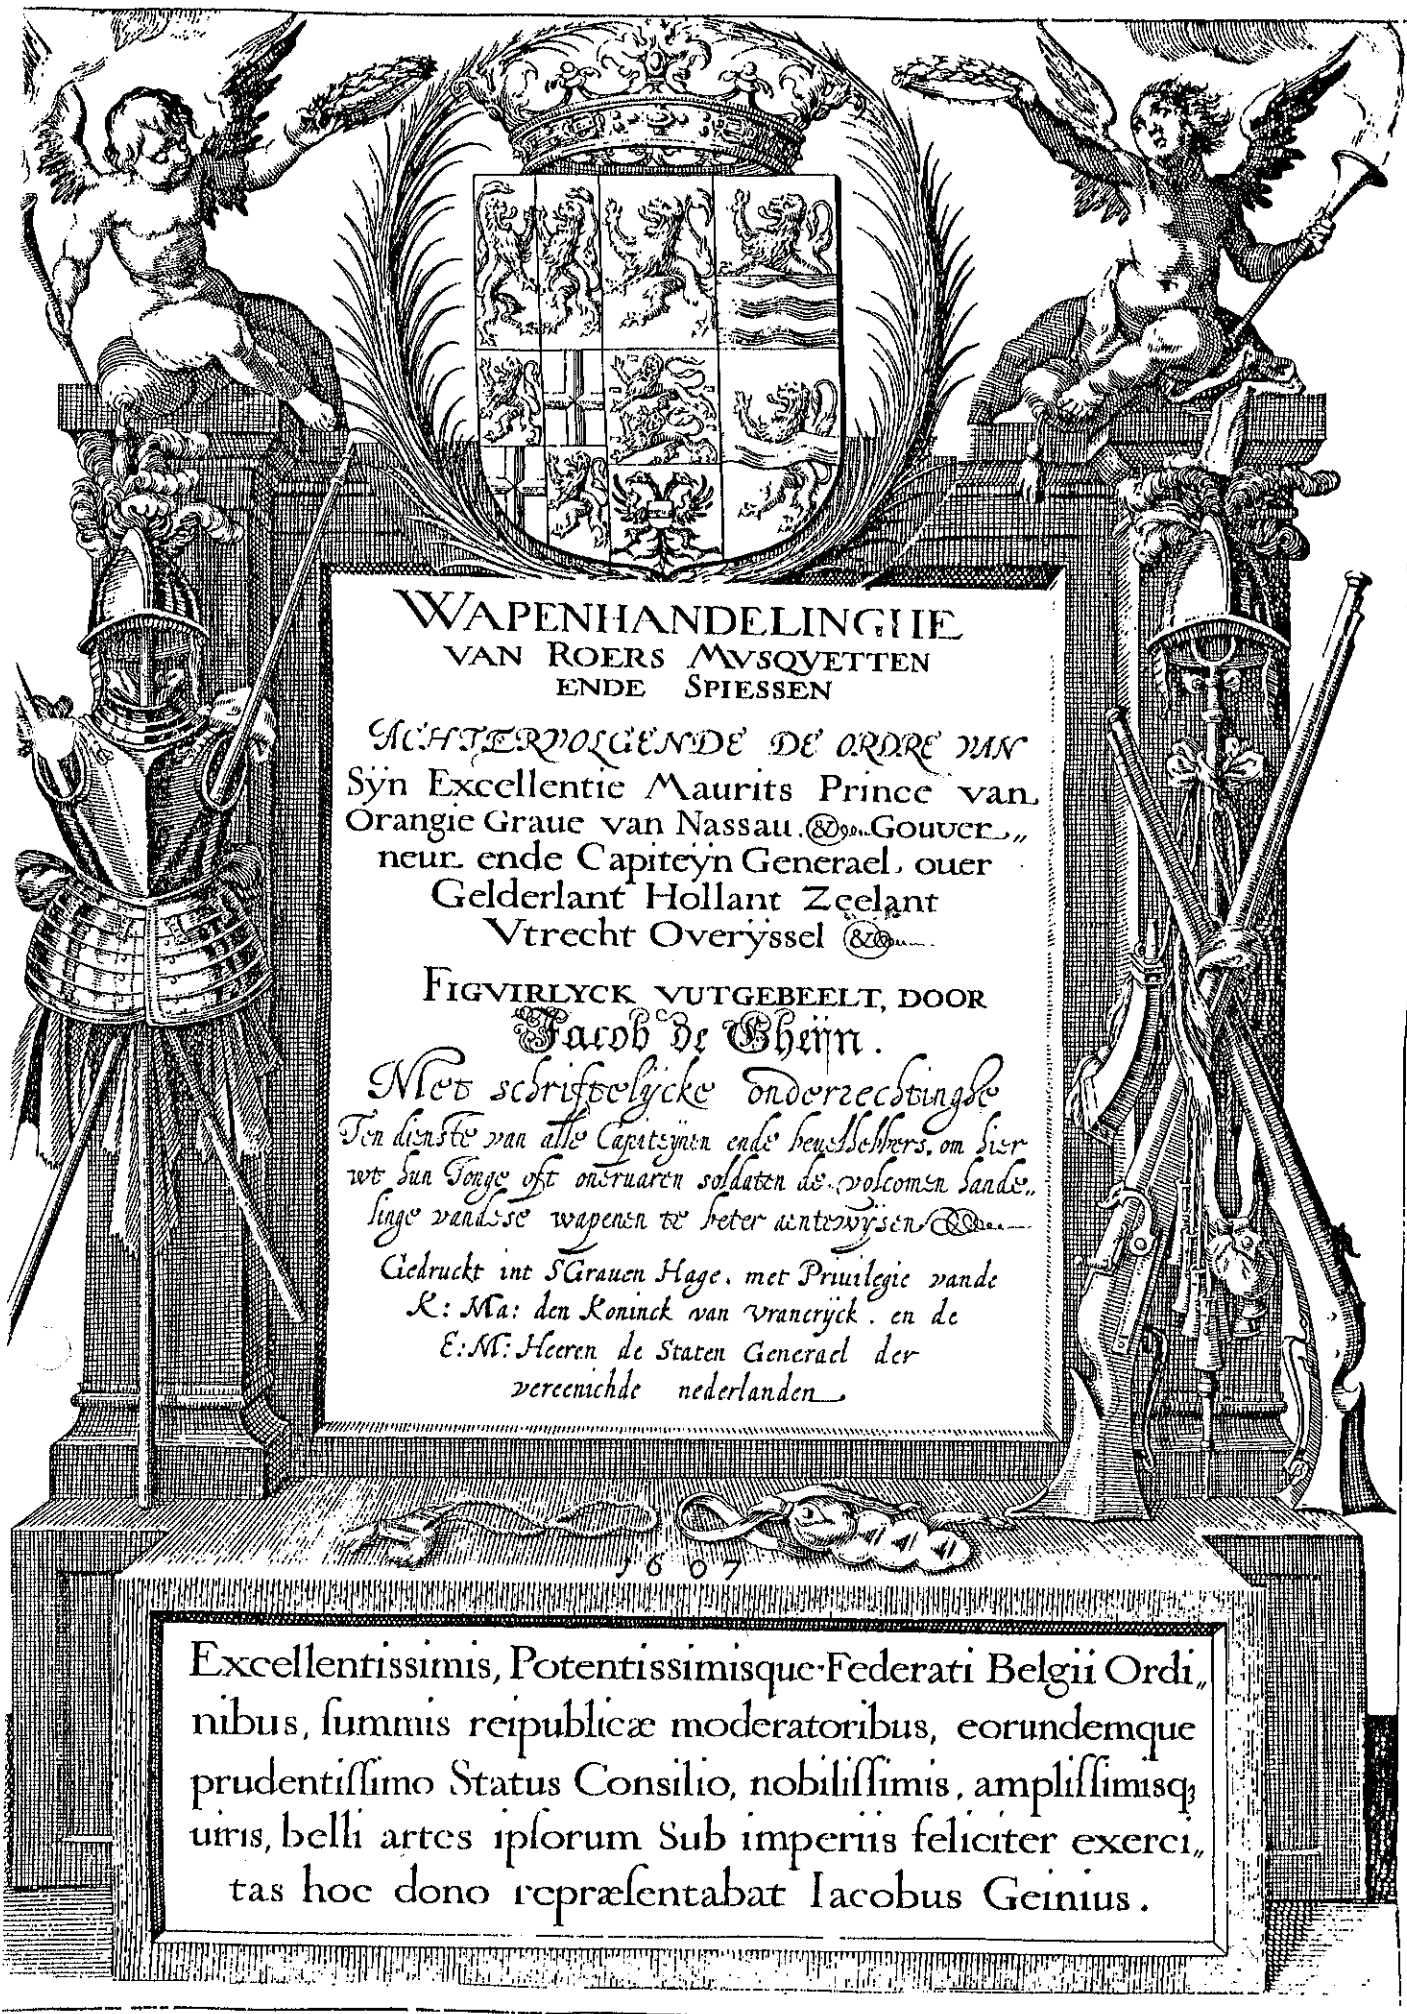 WAPENHANDELINGHE
VAN ROERS MVSQVETTEN
ENDE SPIESSEN
ACHTERVOLGENDE DE ORDRE VAN
Sÿn Excellentie Maurits Prince van
Orangie Graue van Nassau. &c. Gouver„
neur ende Capiteÿn Generael ouer
Gelderlant Hollant Zeelant
Vtrecht Overÿssel &c
FIGVIRLYCK VUTGEBEELT, DOOR
Jacob de Gheÿn.
Met schriftelÿcke onderrechtinghe
Ten dienste van alle Capiteÿnen ende beuelhebbers. om hier
wt hun Jonge oft oneruaren soldaten de volcomen hande„
linge vandese wapenen te beter aentewÿsen
Gedruckt int SGrauen Hage. met Priuilegie vande
K: Ma: den Koninck van Vrancrÿck. en de
E: M: Heeren de Staten Generael der
vereenichde nederlanden
1607
Excellentissimis, Potentissimisque Federati Belgii Ordi„
nibus, ſummis reipublicæ moderatoribus, eorundemque
prudentiſſimo Status Consilio, nobiliſſimis, ampliſſimisq;
uiris, belli artes ipſorum Sub imperiis feliciter exerci„
tas hoc dono repræſentabat Iacobus Geinius.